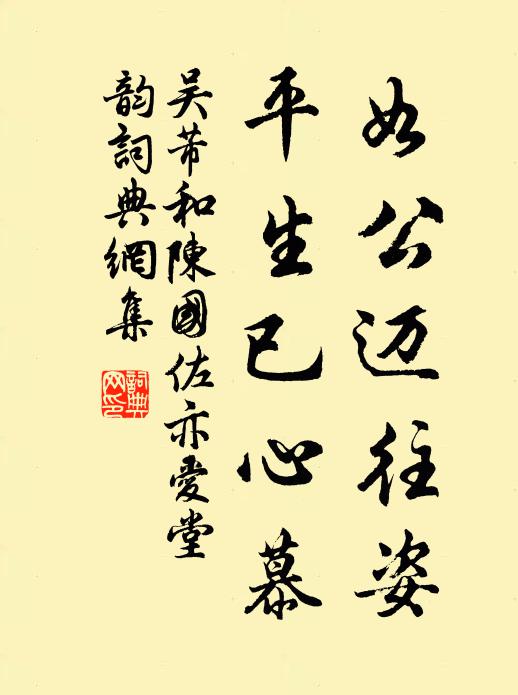 如公迈往姿
平生已心慕
吴芾和陳國佐亦愛堂
韵詞典網集
詞典网印